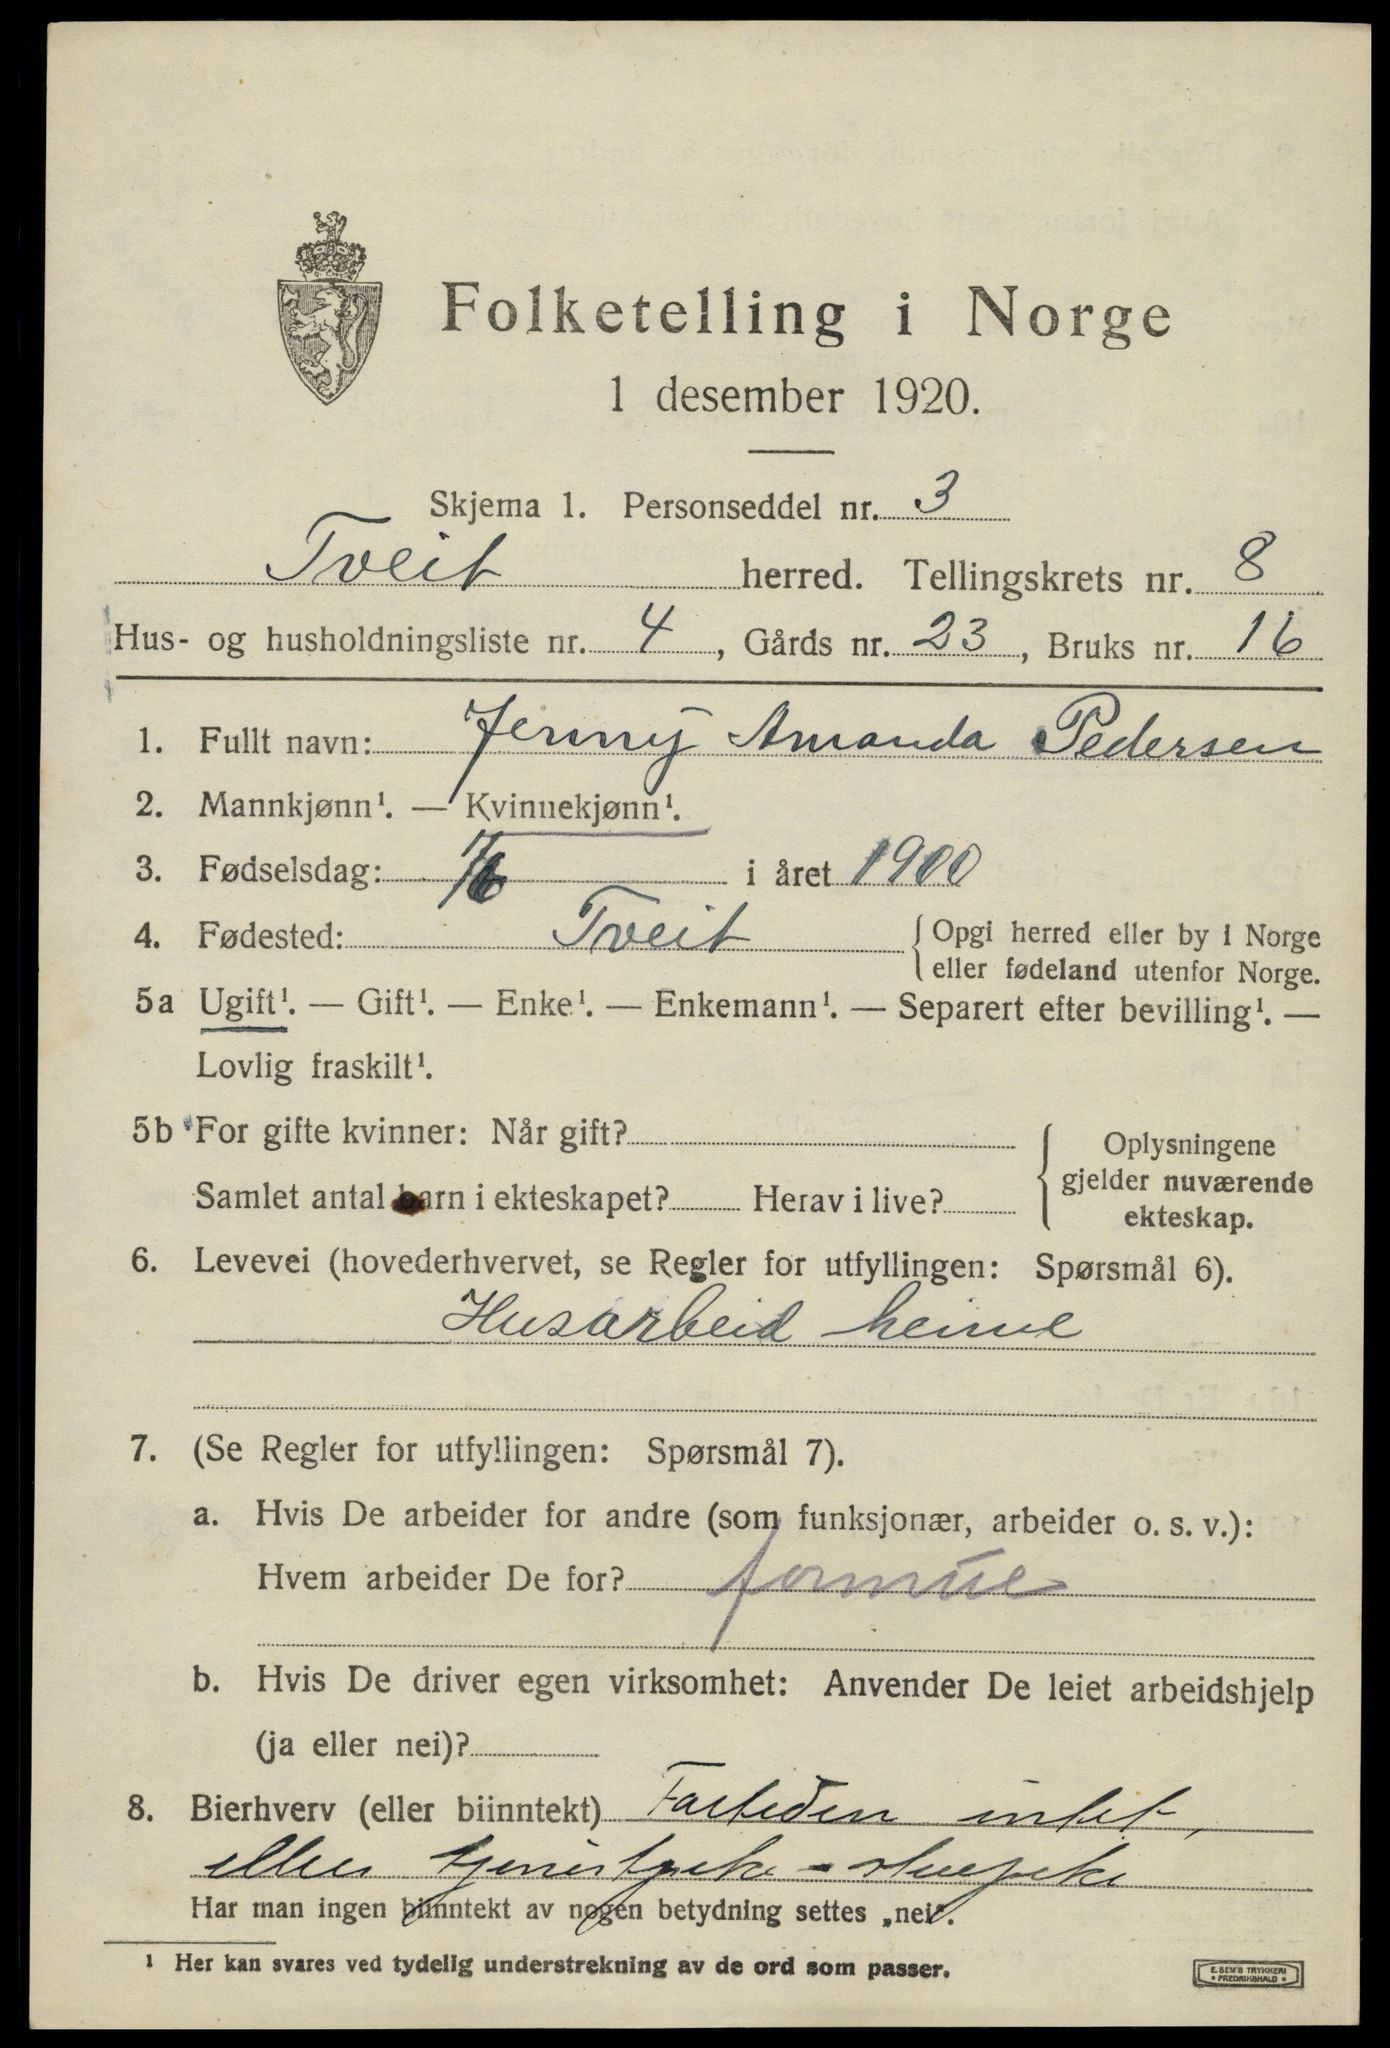 Folketelling i Norge
1 desember 1920.
Skjema 1. Personseddel nr. 3
Tveit herred. Tellingskrets nr. 8
Hus- og husholdningsliste nr. 4, Gårds nr. 23, Bruks nr. 16
1. Fullt navn: Jenny Amanda Pedersen
2. Mannkjønn¹. — Kvinnekjønn¹.
3. Fødselsdag: 1/6 i året 1900
4. Fødested: Tveit { Opgi herred eller by i Norge
eller fødeland utenfor Norge.
5a Ugift¹. — Gift¹. — Enke¹. — Enkemann¹. — Separert efter bevilling¹. —
Lovlig fraskilt¹.
5b For gifte kvinner: Når gift?
Samlet antal barn i ekteskapet? Herav i live?
{ Oplysningene
gjelder nuværende
ekteskap.
6. Levevei (hovederhvervet, se Regler for utfyllingen: Spørsmål 6).
Husarbeid heime
7. (Se Regler for utfyllingen: Spørsmål 7).
a. Hvis De arbeider for andre (som funksjonær, arbeider o. s. v.):
Hvem arbeider De for?
b. Hvis De driver egen virksomhet: Anvender De leiet arbeidshjelp
(ja eller nei)?
8. Bierhverv (eller biinntekt) Fortiden intet,
ellers
Har man ingen biinntekt av nogen betydning settes „nei“.
¹ Her kan svares ved tydelig understrekning av de ord som passer.
E. SEM'S TRYKKERI
• FREDRIKSHALD •